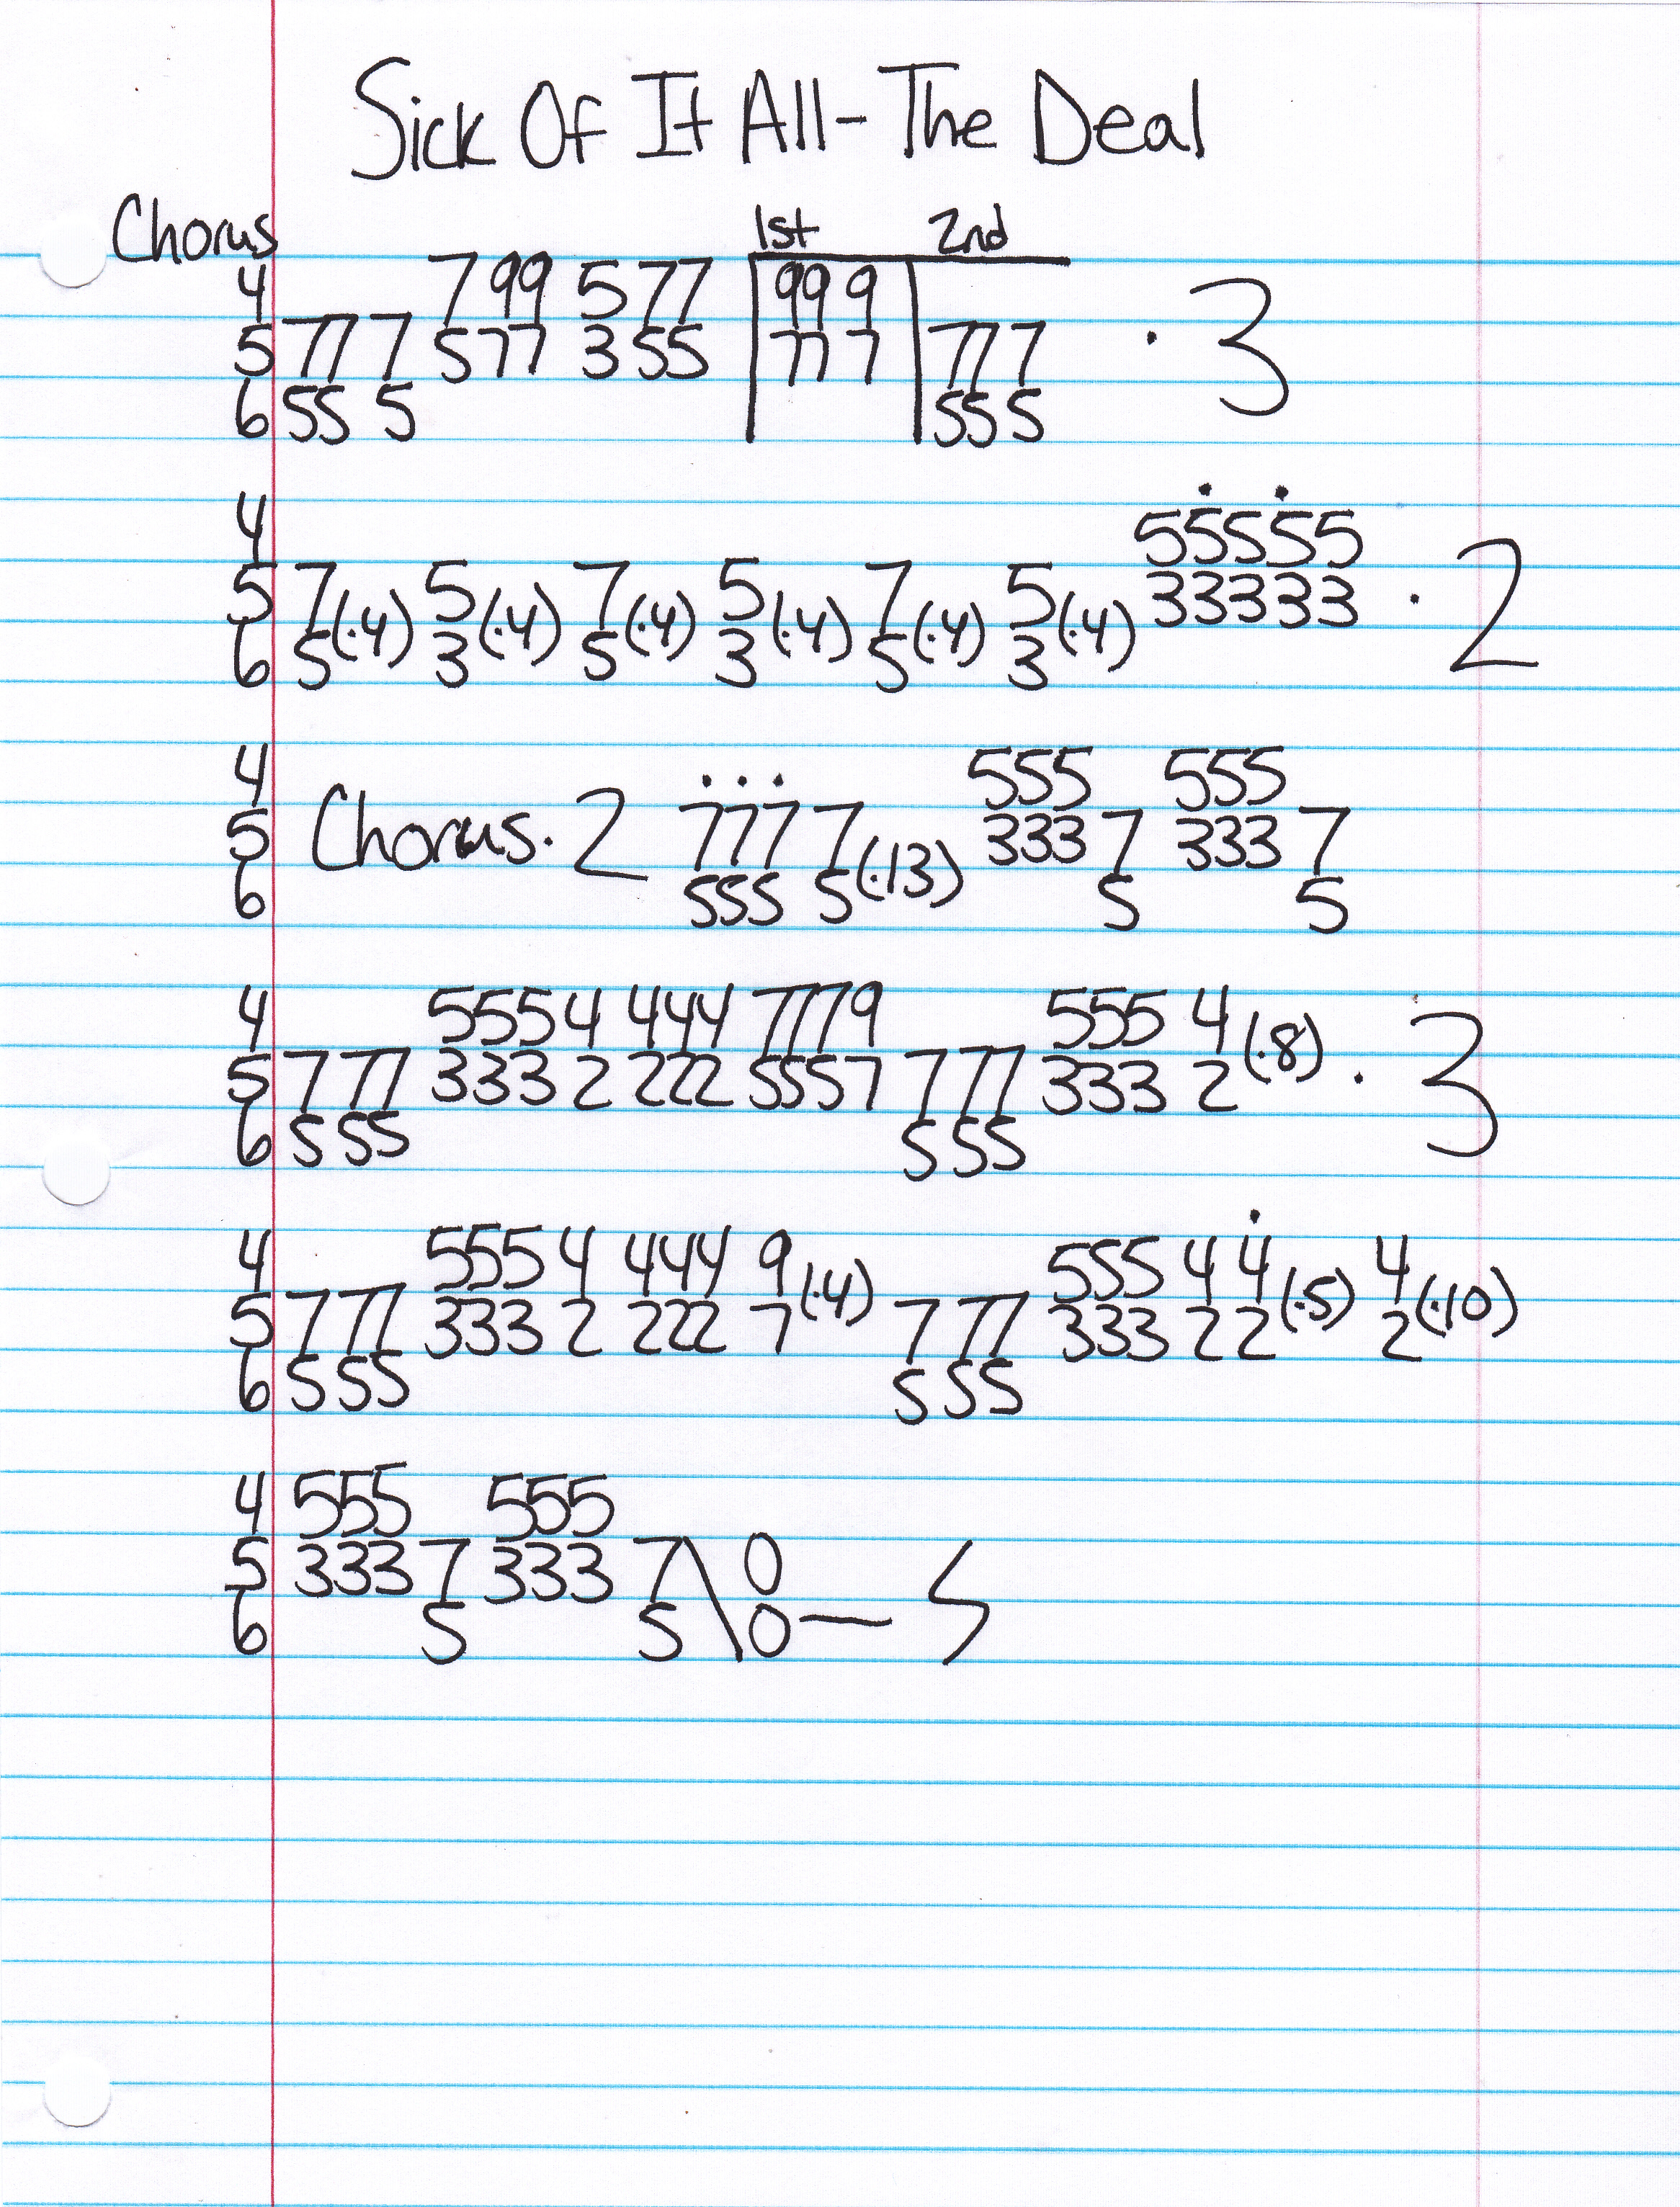 Sick Of It All - The Deal
Chorus 1st 2nd
4 7 99 5 77 99 9
5 77 7 5 77 3 55 77 7 77 7 · 3
6 55 5 55 5
4 55555
5 7(·4) 5(·4) 7(·4) 5(·4) 7(·4) 5(·4) 33333 · 2
6 5 3 5 3 5 3
4 555 555
5 Chorus · 2 777 7(·13) 333 7 333 7
6 555 5 5 5
4 555 4 444 777 9 555 4(·8)
5 7 77 333 2 222 555 7 7 77 333 2 · 3
6 5 55 5 55
4 555 4 444 9(·4) 555 4 4(·5) 4(·10)
5 7 77 333 2 222 7 7 77 333 2 2 2
6 5 55 5 55
4 555 555
5 333 7 333 7\0
6 5 5 0—